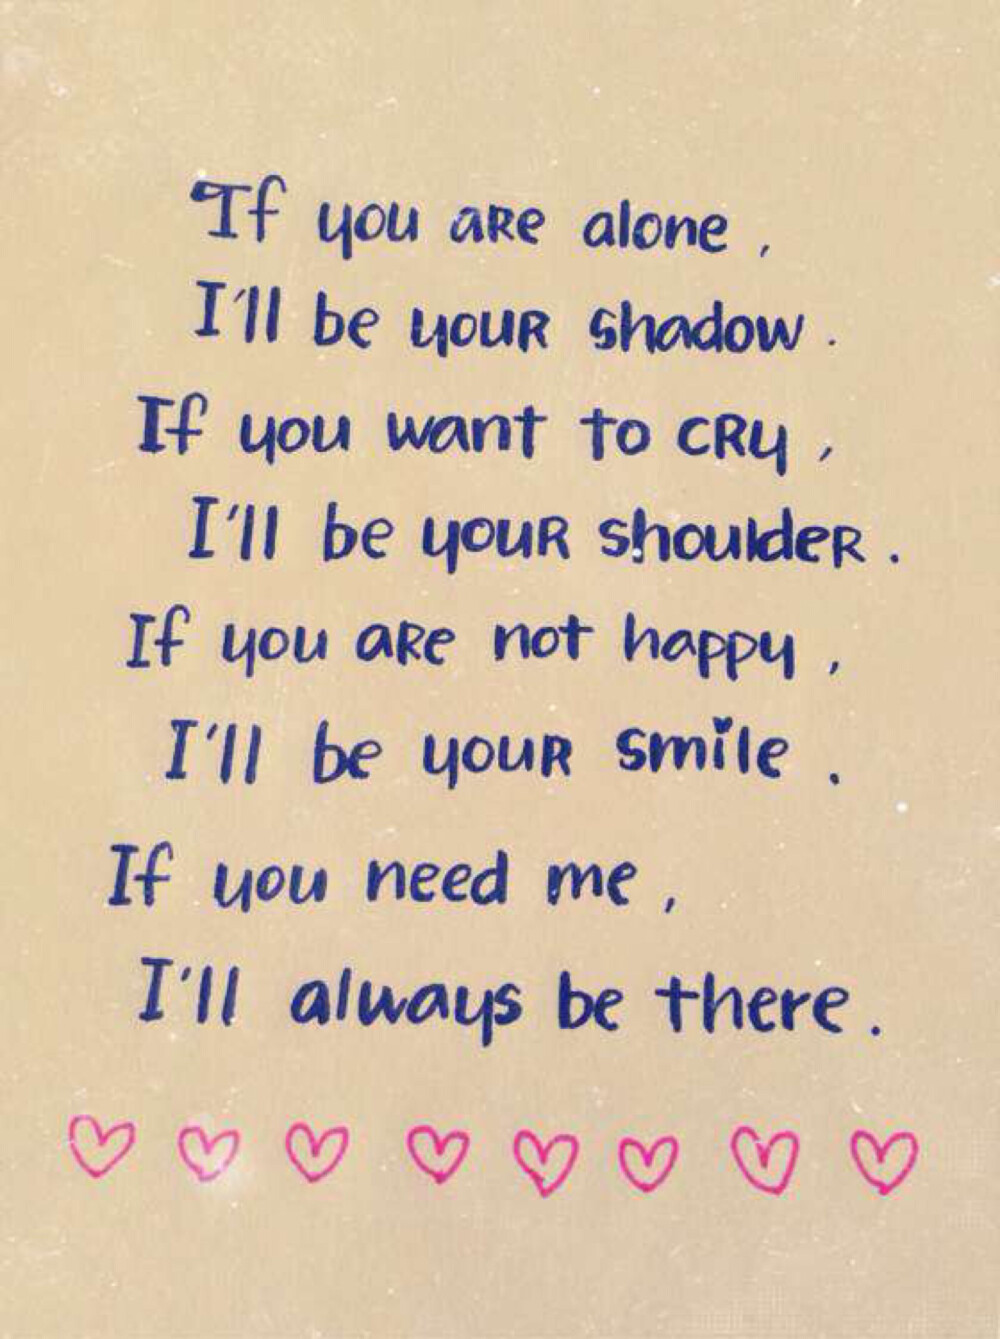 If you are alone ,
I'll be your shadow .
If you want to cry ,
I'll be your shoulder .
If you are not happy ,
I'll be your smile .
If you need me ,
I'll always be there .